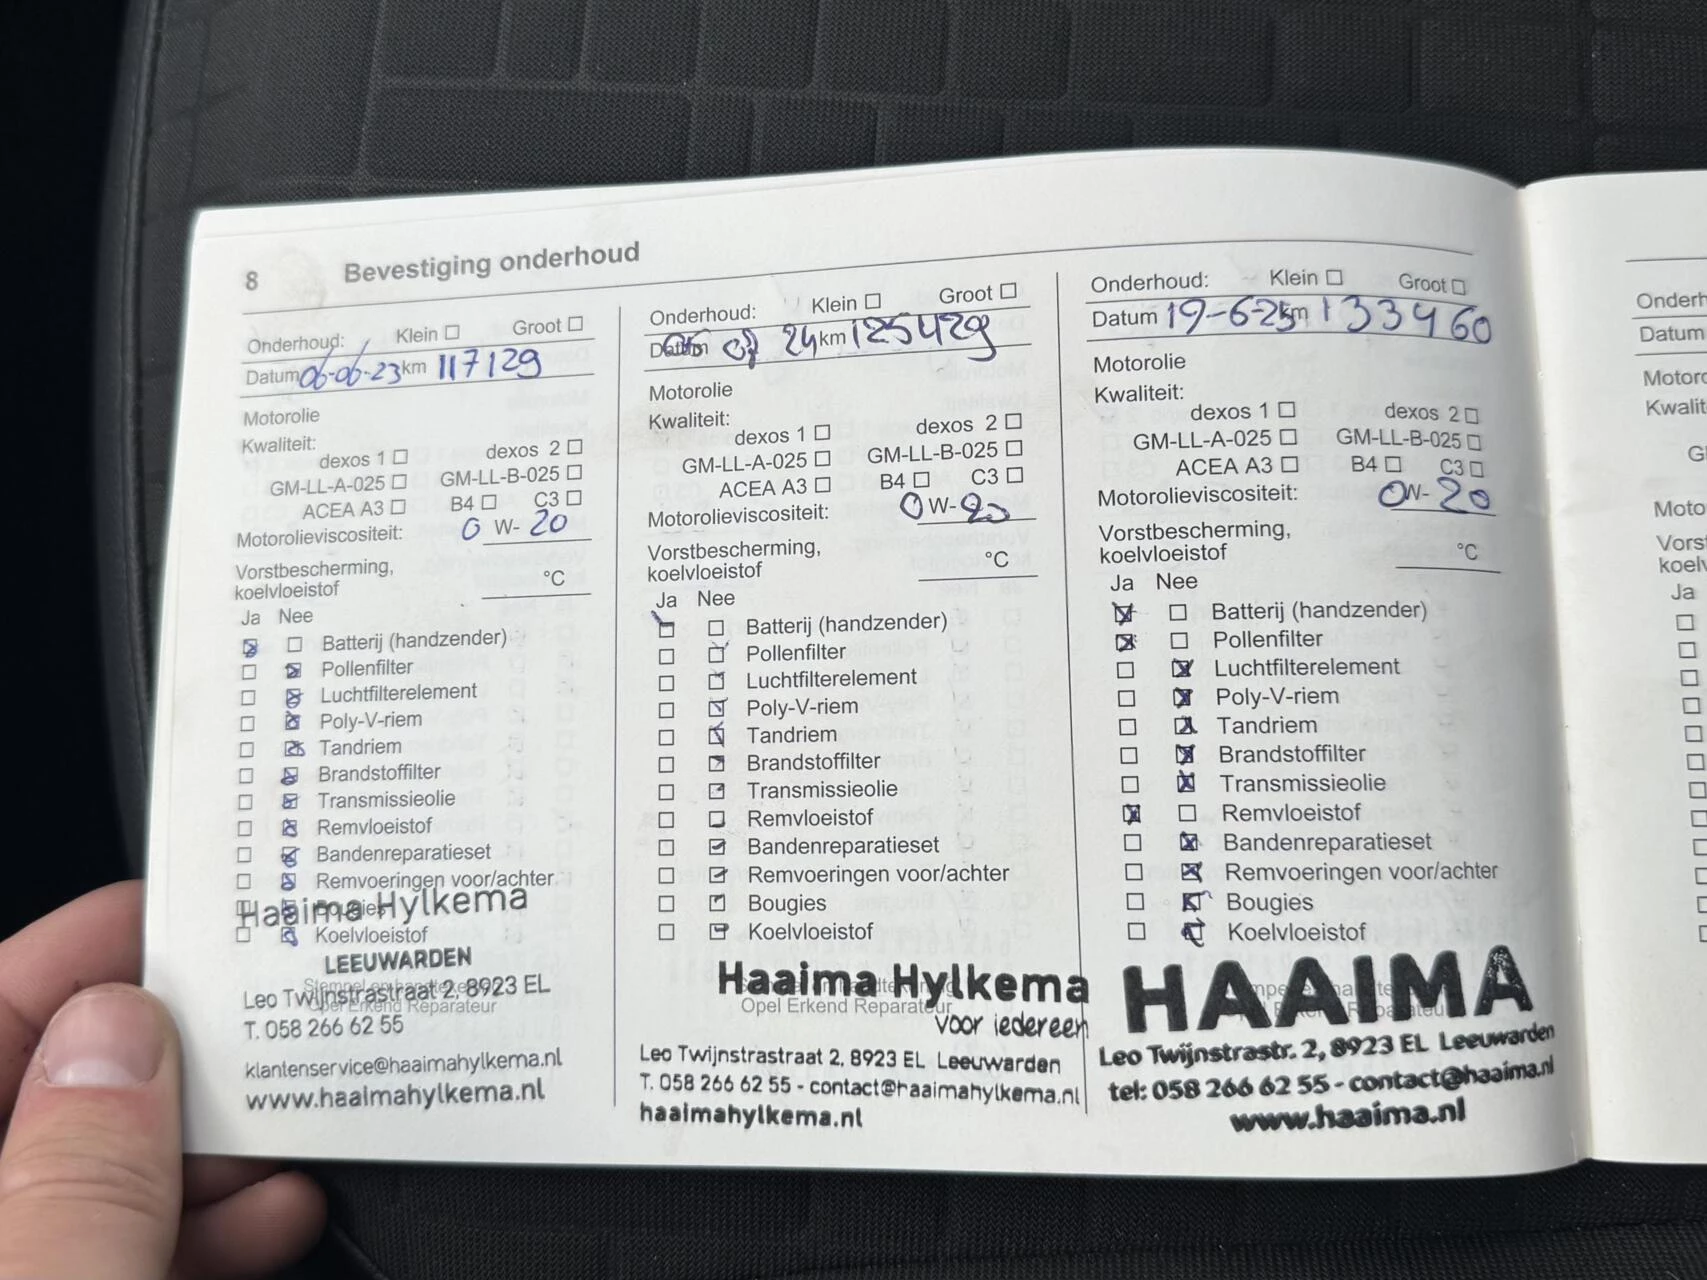 8 Bevestiging onderhoud
Onderhoud: Klein Groot
Datum 06-06-23 km 117129
Motorolie
Kwaliteit:
dexos 1 dexos 2
GM-LL-A-025 GM-LL-B-025
ACEA A3 B4 C3
Motorolieviscositeit: 0 W- 20
Vorstbescherming,
koelvloeistof °C
Ja Nee
Batterij (handzender)
Pollenfilter
Luchtfilterelement
Poly-V-riem
Tandriem
Brandstoffilter
Transmissieolie
Remvloeistof
Bandenreparatieset
Remvoeringen voor/achter
Bougies
Haaima Hylkema
Koelvloeistof
LEEUWARDEN
Stempel en handtekening
Leo Twijnstrastraat 2, 8923 EL
Opel Erkend Reparateur
T. 058 266 62 55
klantenservice@haaimahylkema.nl
www.haaimahylkema.nl
Onderhoud: Klein Groot
Datum 07 24 km 125429
Motorolie
Kwaliteit:
dexos 1 dexos 2
GM-LL-A-025 GM-LL-B-025
ACEA A3 B4 C3
Motorolieviscositeit: 0 W- 20
Vorstbescherming,
koelvloeistof °C
Ja Nee
Batterij (handzender)
Pollenfilter
Luchtfilterelement
Poly-V-riem
Tandriem
Brandstoffilter
Transmissieolie
Remvloeistof
Bandenreparatieset
Remvoeringen voor/achter
Bougies
Koelvloeistof
Haaima Hylkema
Opel Erkend Reparateur
voor iedereen
Leo Twijnstrastraat 2, 8923 EL Leeuwarden
T. 058 266 62 55 - contact@haaimahylkema.nl
haaimahylkema.nl
Onderhoud: Klein Groot
Datum 19-6-25 km 133460
Motorolie
Kwaliteit:
dexos 1 dexos 2
GM-LL-A-025 GM-LL-B-025
ACEA A3 B4 C3
Motorolieviscositeit: 0W- 20
Vorstbescherming,
koelvloeistof °C
Ja Nee
Batterij (handzender)
Pollenfilter
Luchtfilterelement
Poly-V-riem
Tandriem
Brandstoffilter
Transmissieolie
Remvloeistof
Bandenreparatieset
Remvoeringen voor/achter
Bougies
Koelvloeistof
HAAIMA
Leo Twijnstrastr. 2, 8923 EL Leeuwarden
tel: 058 266 62 55 - contact@haaima.nl
www.haaima.nl
Datum
Ja